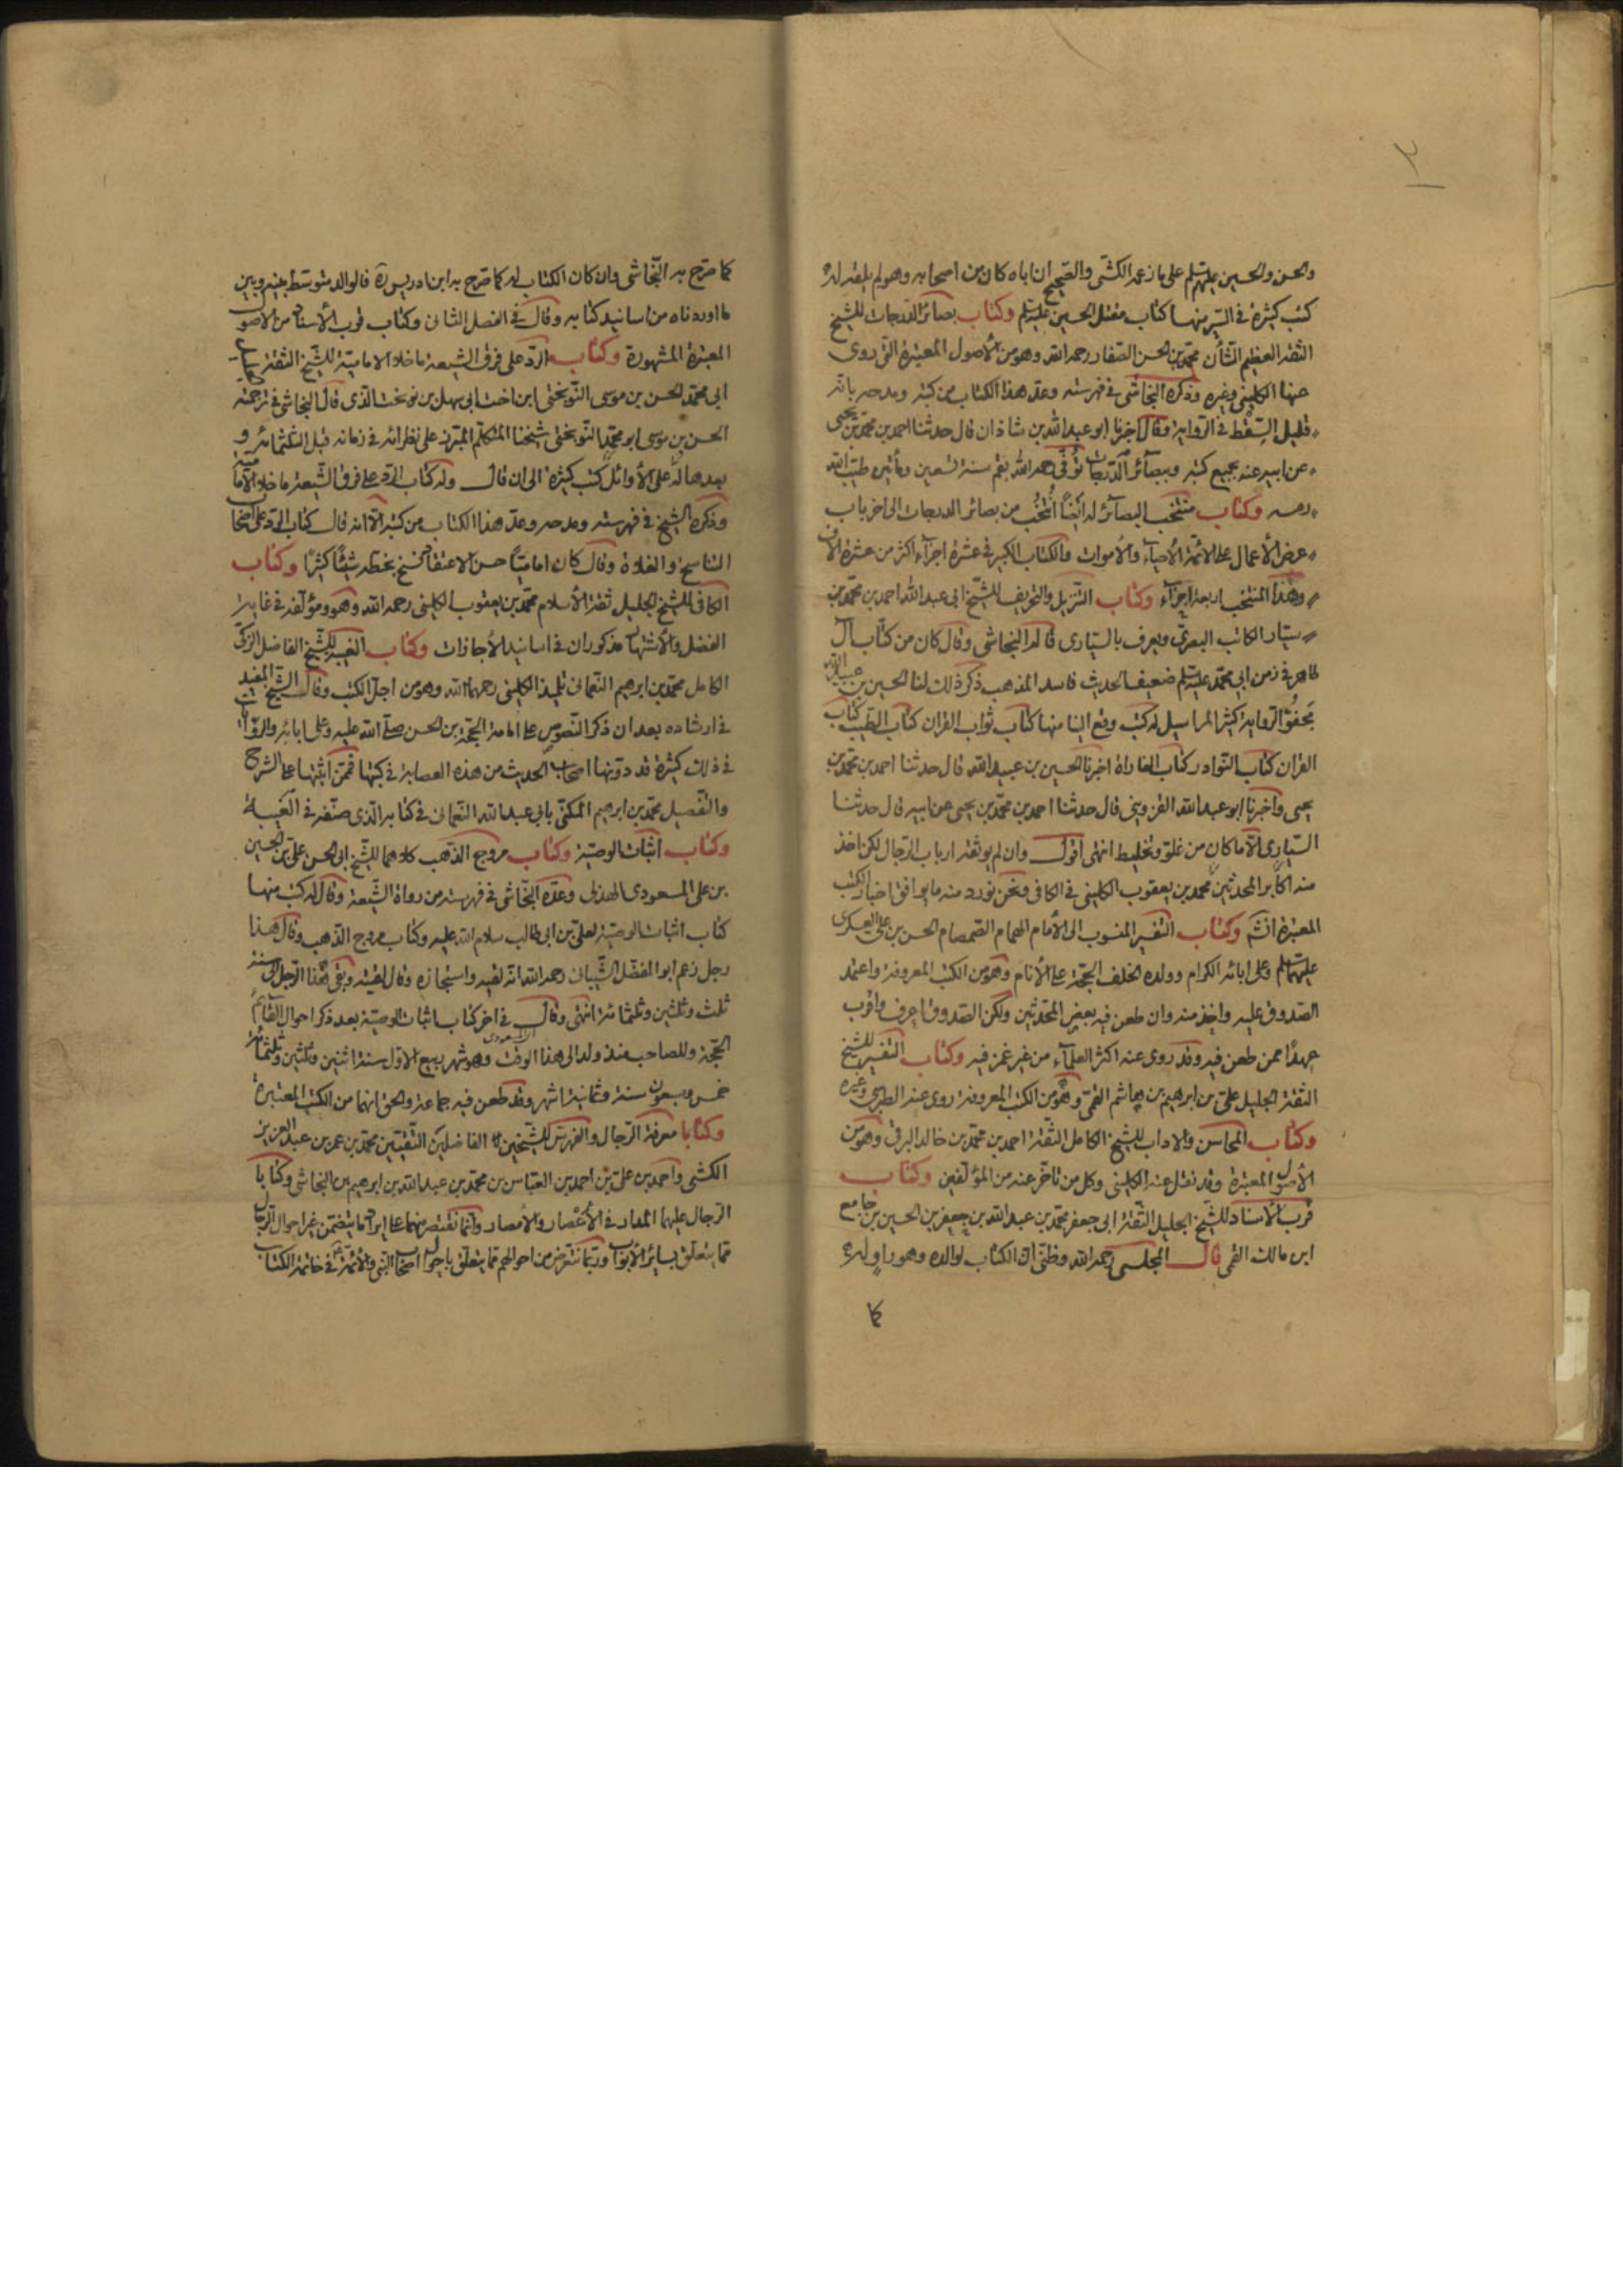 والحسن والحسين عليهم السلم على ما زعمه الكشى والصحيح ان اباه كان من اصحابه وهو لم يلقه له
كتب كثيرة فى السير منها كتاب مقتل الحسين عليه السلم وكتاب بصائر الدرجات للشيخ
الثقة العظيم الشأن محمد بن الحسن الصفار رحمه الله وهو من الأصول المعتبرة التى روى
عنها الكلينى وغيره وذكره النجاشى فى فهرسته وعد هذا الكتاب من كتبه ومدحه بانه
قليل السقط فى الرواية وقال اخبرنا ابو عبد الله بن شاذان قال حدثنا احمد بن محمد بن يحيى
عن ابيه عنه بجميع كتبه وببصائر الدرجات توفى رحمه الله بقم سنة تسعين ومأتين طيب الله
رمسه وكتاب منتخب البصائر له ايضا انتخب من بصائر الدرجات الى اخر باب
عرض الأعمال على الائمة الأحياء والأموات والكتاب الكبير فى عشرة اجزاء اكثر من عشرة الاف
وهذا المنتخب اربعة اجزاء وكتاب التنزيل والتحريف للشيخ ابى عبد الله احمد بن محمد بن
سيار الكاتب البصرى ويعرف بالسيارى قاله النجاشى وقال كان من كتاب آل
طاهر فى زمن ابى محمد عليه السلم ضعيف الحديث فاسد المذهب ذكر ذلك لنا الحسين بن عبيد الله
مجفو الرواية كثير المراسيل له كتب وقع الينا منها كتاب ثواب القران كتاب الطب كتاب
القران كتاب النوادر كتاب الغاراة اخبرنا الحسين بن عبيد الله قال حدثنا احمد بن محمد بن
يحيى واخبرنا ابو عبد الله القزوينى قال حدثنا احمد بن محمد بن يحيى عن ابيه قال حدثنا
السيارى الا ما كان من غلو وتخليط انتهى اقول وان لم يوثقه ارباب الرجال لكن اخذ
منه اكابر المحدثين محمد بن يعقوب الكلينى فى الكافى ونحن نورد منه ما يوافق اخبار الكتب
المعتبرة وكتاب التفسير المنسوب الى الأمام الهمام الصمصام الحسن بن على العسكرى
عليهما السلم وعلى ابائه الكرام وولده الخلف الحجة على الأنام وهو من الكتب المعروفة واعتمد
الصدوق عليه واخذ منه وان طعن فيه بعض المحدثين ولكن الصدوق اعرف واقرب
عهدا ممن طعن فيه وقد روى عنه اكثر العلماء من غير غمز فيه وكتاب التفسير للشيخ
الثقة الجليل على بن ابراهيم بن هاشم القمى وهو من الكتب المعروفة روى عنه الطبرسى وغيره
وكتاب المحاسن والاداب للشيخ الكامل الثقة احمد بن محمد بن خالد البرقى وهو من
الأصول المعتبرة وقد نقل عنه الكلينى وكل من تأخر عنه من المؤلفين وكتاب
قرب الأسناد للشيخ الجليل الثقة ابى جعفر محمد بن عبد الله بن جعفر بن الحسين بن جامع
ابن مالك القمى قال المجلسى رحمه الله وظنى ان الكتاب لوالده وهو راو له
كما
كما صرح به النجاشى وان كان الكتاب له كما صرح به ابن ادريس ره فالوالد متوسط بينه وبين
ما اوردناه من اسانيد كتابه وقال فى الفصل الثانى وكتاب قرب الأسناد من الاصول
المعتبرة المشهورة وكتاب الرد على فرق الشيعة ما خلا الامامية للشيخ الثقة
ابى محمد الحسن بن موسى النوبختى ابن اخت ابى سهل بن نوبخت الذى قال النجاشى فى ترجمته
الحسن بن موسى ابو محمد النوبختى شيخنا المتكلم المبرز على نظرائه فى زمانه قبل الثلثمائة و
بعدها له على الأوائل كتب كثيرة الى ان قال وله كتاب الرد على فرق الشيعة ما خلا الامامية
وذكره الشيخ فى فهرسته ومدحه وعد هذا الكتاب من كتبه الا انه قال كتاب الرد على اصحاب
التناسخ والغلاة وقال كان اماميا حسن الاعتقاد نسخ بخطه شيئا كثيرا وكتاب
الكافى للشيخ الجليل ثقة الأسلام محمد بن يعقوب الكلينى رحمه الله وهو ومؤلفه فى غاية
الفضل والأشتهار مذكوران فى اسانيد الأجازات وكتاب الغيبة للشيخ الفاضل الزكى
الكامل محمد بن ابرهيم النعمانى تلميذ الكلينى رحمهما الله وهو من اجل الكتب وقال الشيخ المفيد
فى ارشاده بعد ان ذكر النصوص على امامة الحجة بن الحسن صلى الله عليه وعلى ابائه والروايات
فى ذلك كثيرة قد دونها اصحاب الحديث من هذه العصابة فى كتبها فممن اثبتها على الشرح
والتفصيل محمد بن ابرهيم المكنى بابى عبد الله النعمانى فى كتابه الذى صنفه فى الغيبة
وكتاب اثبات الوصية وكتاب مروج الذهب كلاهما للشيخ ابى الحسن على بن الحسين
بن على المسعودى الهذلى وعده النجاشى فى فهرسته من رواة الشيعة وقال له كتب منها
كتاب اثبات الوصية لعلى بن ابى طالب سلام الله عليه وكتاب مروج الذهب وقال هذا
رجل زعم ابو المفضل الشيبانى رحمه الله انه لقيه واستجازه وقال لقيته وبقى هذا الرجل الى سنة
ثلث وثلثين وثلثمائة انتهى وقال فى اخر كتاب اثبات الوصية بعد ذكر احوال القائم
المسعودى
الحجة وللصاحب منذ ولد الى هذا الوقت وهو شهر ربيع الاول سنة اثنين وثلثين وثلثمائة
خمس وسبعون سنة وثمانية اشهر وقد طعن فيه جماعة والحق انهما من الكتب المعتبرة
وكتابا معرفة الرجال والفهرس للشيخين الفاضلين الثقتين محمد بن عمر بن عبد العزيز
الكشى واحمد بن على بن احمد بن العباس بن محمد بن عبد الله بن ابرهيم بن النجاشى وكتابا
الرجال عليهما المدار فى الأعصار والأمصار وانما نقتصر منهما على ايراد ما يتضمن غير احوال الرجال
مما يتعلق بسائر الأبواب وربما نتعرض من احوالهم مما يتعلق باحوال اصحاب النبى والأئمة فى خاتمة الكتاب